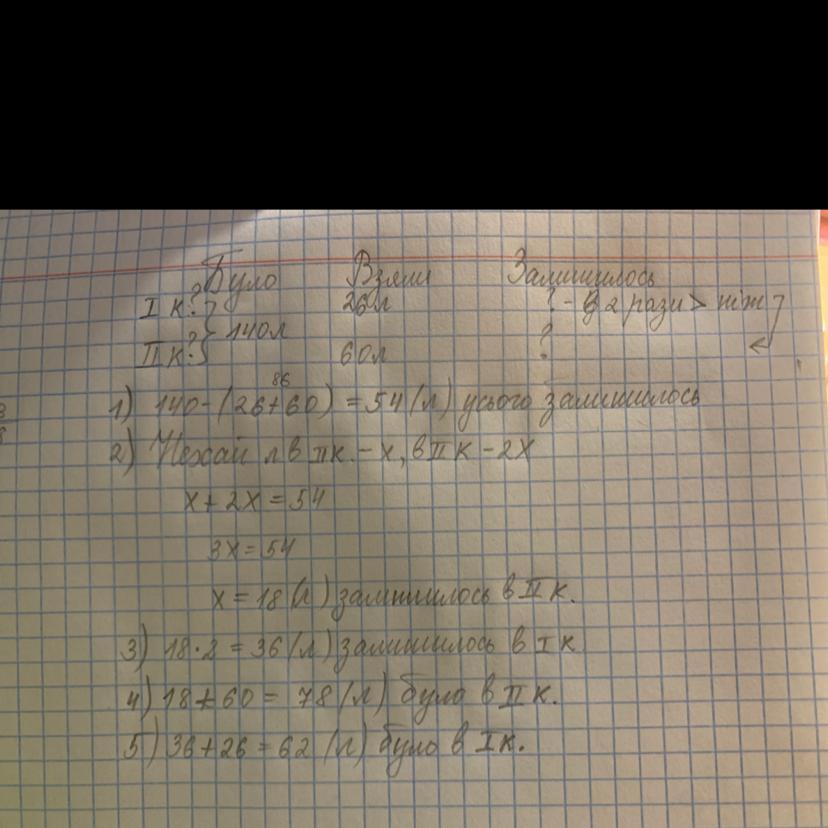 Було Взяли Залишилось
I к ? } 26л ? - в 2 рази > ніж
140л
II к ? } 60л ?
86
1) 140-(26+60) = 54 (л) усього залишилось
2) Нехай л в II к. - x, в II к - 2x
x + 2x = 54
3x = 54
x = 18 (л) залишилось в II к.
3) 18·2 = 36 (л) залишилось в I к
4) 18+60 = 78 (л) було в II к.
5) 36+26 = 62 (л) було в I к.